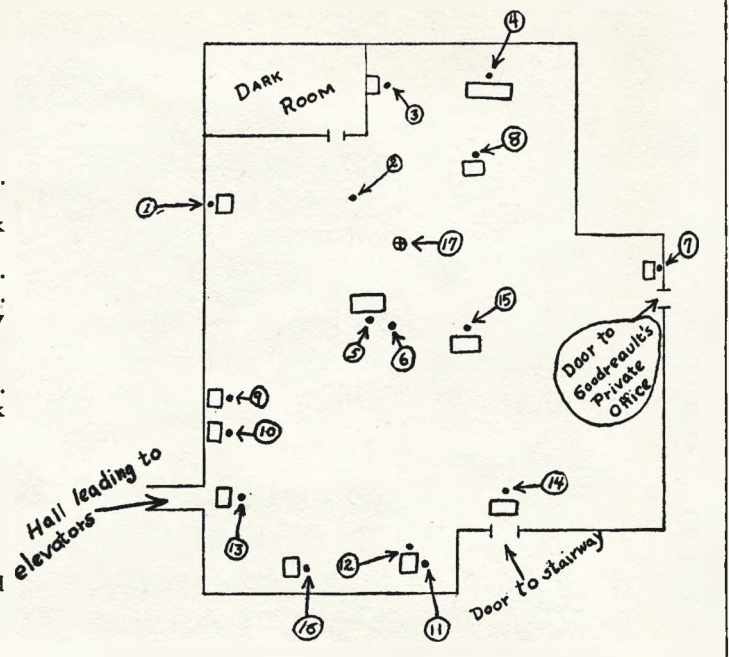 4
DARK
ROOM
3
8
2
1
17
7
15
5
6
Door to
Goodreault's
Private
Office
9
10
Hall leading to
elevators
14
13
12
16
11
Door to stairway